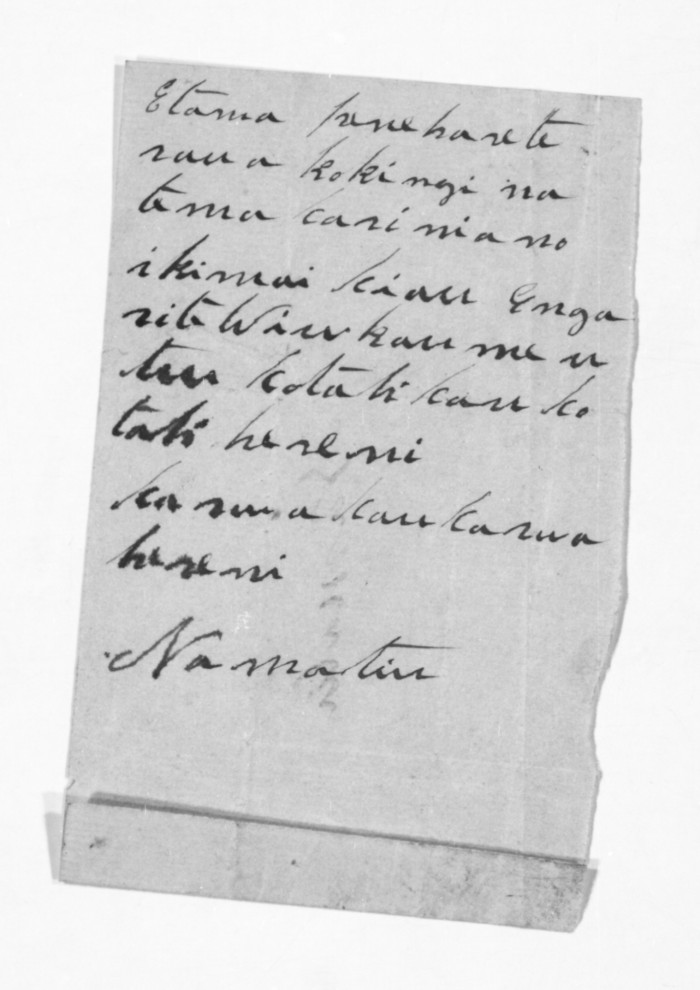 Etama panehare te
raua ko kingi na
tema karimano
i ki mai kiau Enga
rite Wiwkau me u
tu kotahi kau ko
tahi hereni
ka rua kau ka rua
hereni
Na matiu